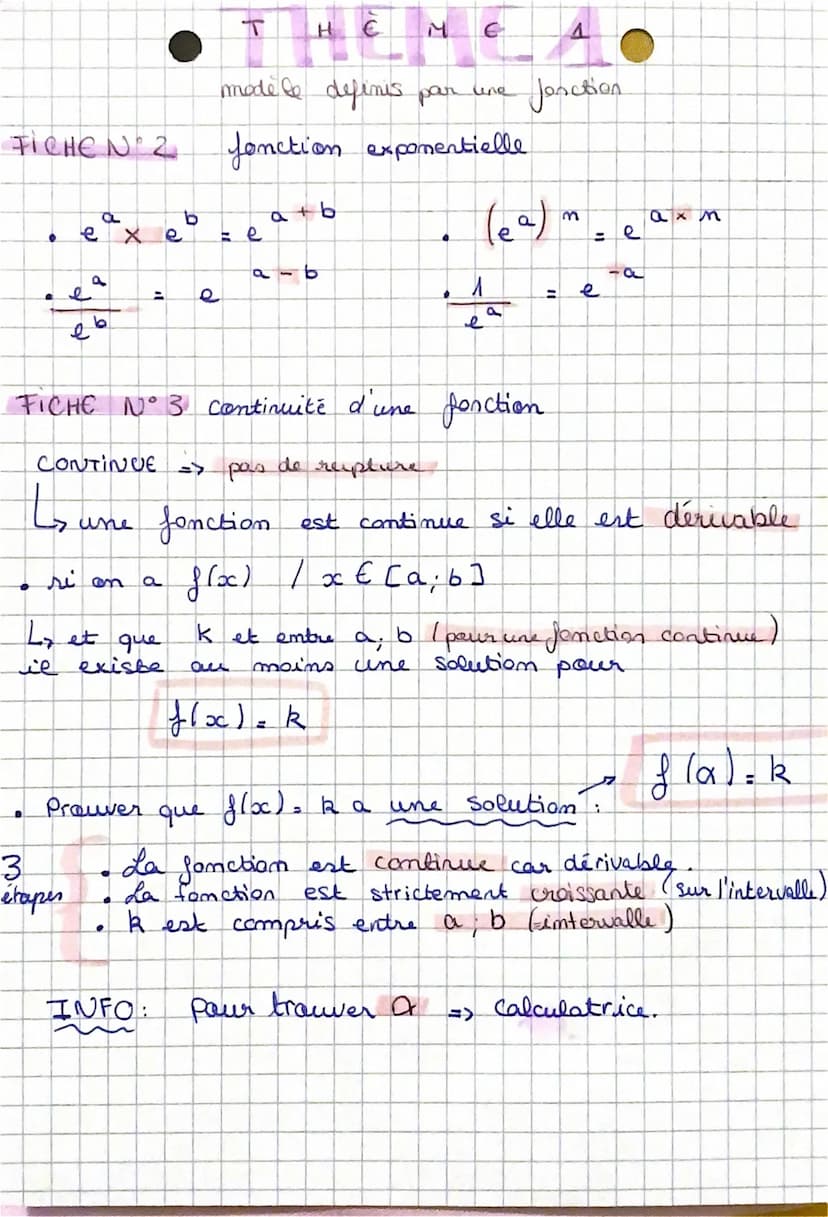 THÈME 1
modèle definis par une fonction
FICHE N°2 fonction exponentielle
• e^a × e^b = e^(a+b) • (e^a)^n = e^(a×n)
• e^a / e^b = e^(a-b) • 1 / e^a = e^(-a)
FICHE N°3 continuité d'une fonction
CONTINUE => pas de rupture
↳ une fonction est continue si elle est dérivable
• si on a f(x) / x ∈ [a; b]
↳ et que k et entre a; b (pour une fonction continue)
il existe au moins une solution pour
f(x) = k
f(α) = k
• Prouver que f(x) = k a une solution :
3 étapes
• La fonction est continue car dérivable.
• La fonction est strictement croissante (sur l'intervalle)
• k est compris entre a; b (intervalle)
INFO: pour trouver α => calculatrice.